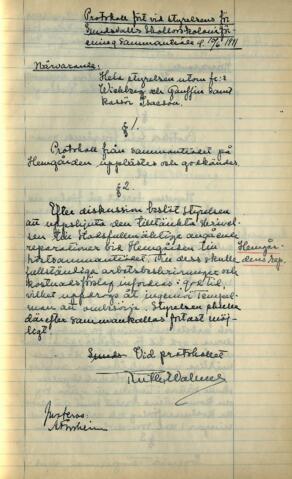 Protokoll fört vid styrelsens för
Sundsvalls Skollovskoloniför-
enings sammanträde d. 1911
Närvarande:
Hela styrelsen utom fr:r
Wickberg och samt
kassör Isacson.
§ 1.
Protokoll från sammanträdet på
Hemgården upplästes och godkändes.
§ 2.
Efter diskussion beslöt styrelsen
att uppskjuta den tilltänkta skrivel-
sen till Stadsfullmäktige angående
reparationer vid Hemgården till
höstsammanträdet. Till dess skulle
fullständiga arbetsbeskrivningar och
kostnadsförslag infordras i god tid,
vilket uppdrogs åt ingeniör Tempel-
man att ombesörja. Styrelsen skulle
därefter sammankallas fortast möj-
ligt.
Hemgår-
dens rep.
Vid protokollet
Justeras: